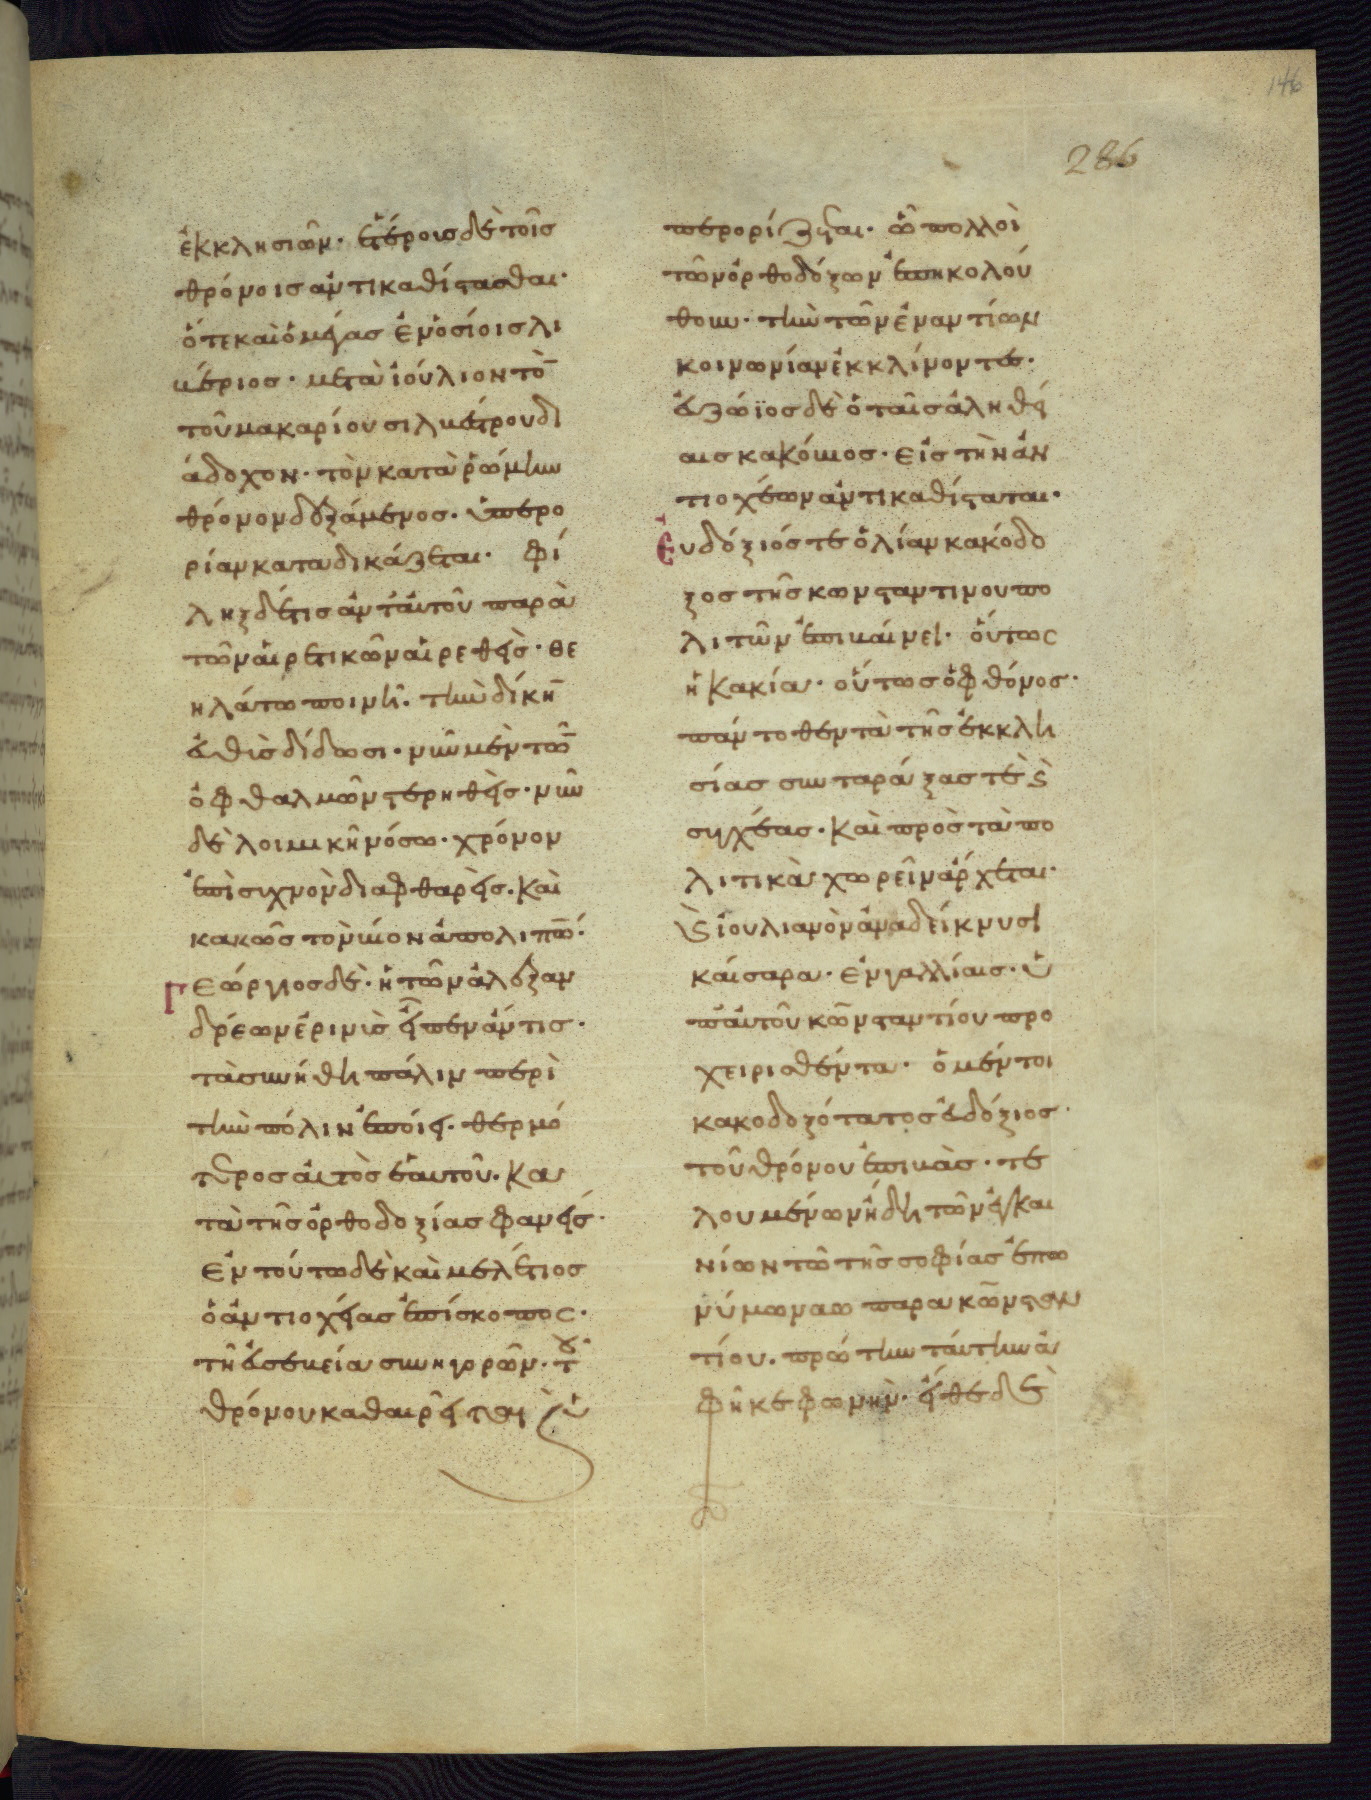 146
286
ἐκκλησιῶν· ἑτέροις δὲ τοῖς
θρόνοις ἀντικαθίστασθαι·
ὅτε καὶ ὁ μέγας ἐν ὁσίοις λι
βέριος· μετὰ ἰούλιον τὸ̅
τοῦ μακαρίου σιλβέστρου δι
άδοχον· τὸν κατὰ ῥώμην
θρόνον δεξάμενος· ὑπερο
ρίαν καταδικάζεται· φί
ληξ δέ τις ἀντ' αὐτοῦ παρὰ
τῶν αἱρετικῶν αἱρεθεὶς· θε
ηλάτω ποινῆ· τὴν δίκη̅
εὐθὺς δίδωσι· νῦν μὲν τῶ̅
ὀφθαλμῶν στερηθεὶς· νῦν
δὲ λοιμικῆ νόσω· χρόνον
ἐπὶ συχνὸν διαφθαρεὶς· καὶ
κακῶς τὸν βίον ἀπολιπώ̅·
Γεώργιος δὲ· ἡ τῶν ἀλεξαν
δρέων ἐριννὺς εἶπεν ἄν τις·
τὰ συνήθη πάλιν περὶ
τὴν πόλιν ἐποίει· θερμό
τερος αὐτὸς ἑαυτοῦ· κα
τὰ τῆς ὀρθοδοξίας φανείς·
Ἐν τούτω δὲ καὶ μελέτιος
ὁ ἀντιοχείας ἐπίσκοπος·
τῆ εὐσεβεία συνηγορῶν· τοῦ
θρόνου καθαιρεῖται καὶ ὑ
περορίζεται· ὧ πολλοὶ
τῶν ὀρθοδόξων ἐπηκολού
θουν· τὴν τῶν ἐναντίων
κοινωνίαν ἐκκλίνοντες·
εὐζώϊος δὲ ὁ ταῖς ἀληθεί
αις κακόβιος· εἰς τὴν ἀν
τιοχέων ἀντικαθίσταται·
Εὐδόξιός τε ὁ λίαν κακόδο
ξος τῆς κωνσταντινουπο
λιτῶν ἐπιβαίνει· οὕτως
ἡ κακία· οὕτως ὁ φθόνος·
πάντοθεν τὰ τῆς ἐκκλη
σίας συνταράξας τὲ καὶ
συγχέας· καὶ πρὸς τὰ πο
λιτικὰ χωρεῖν ἄρχεται·
καὶ ἰουλιανὸν ἀναδείκνυσι
καίσαρα· ἐν γαλλίαις· ὑ
π' αὐτοῦ κωνσταντίου προ
χειρισθέντα· ὁ μέντοι
κακοδοξότατος εὐδόξιος·
τοῦ θρόνου ἐπιβὰς· τε
λουμένων ἤδη τῶν ἐγκαι
νίων τῶ τῆς σοφίας ἐπω
νύμω ναῶ παρὰ κωνσταν
τίου· πρώτην ταύτην ἀ
φῆκε φωνήν· εἶθε δὲ